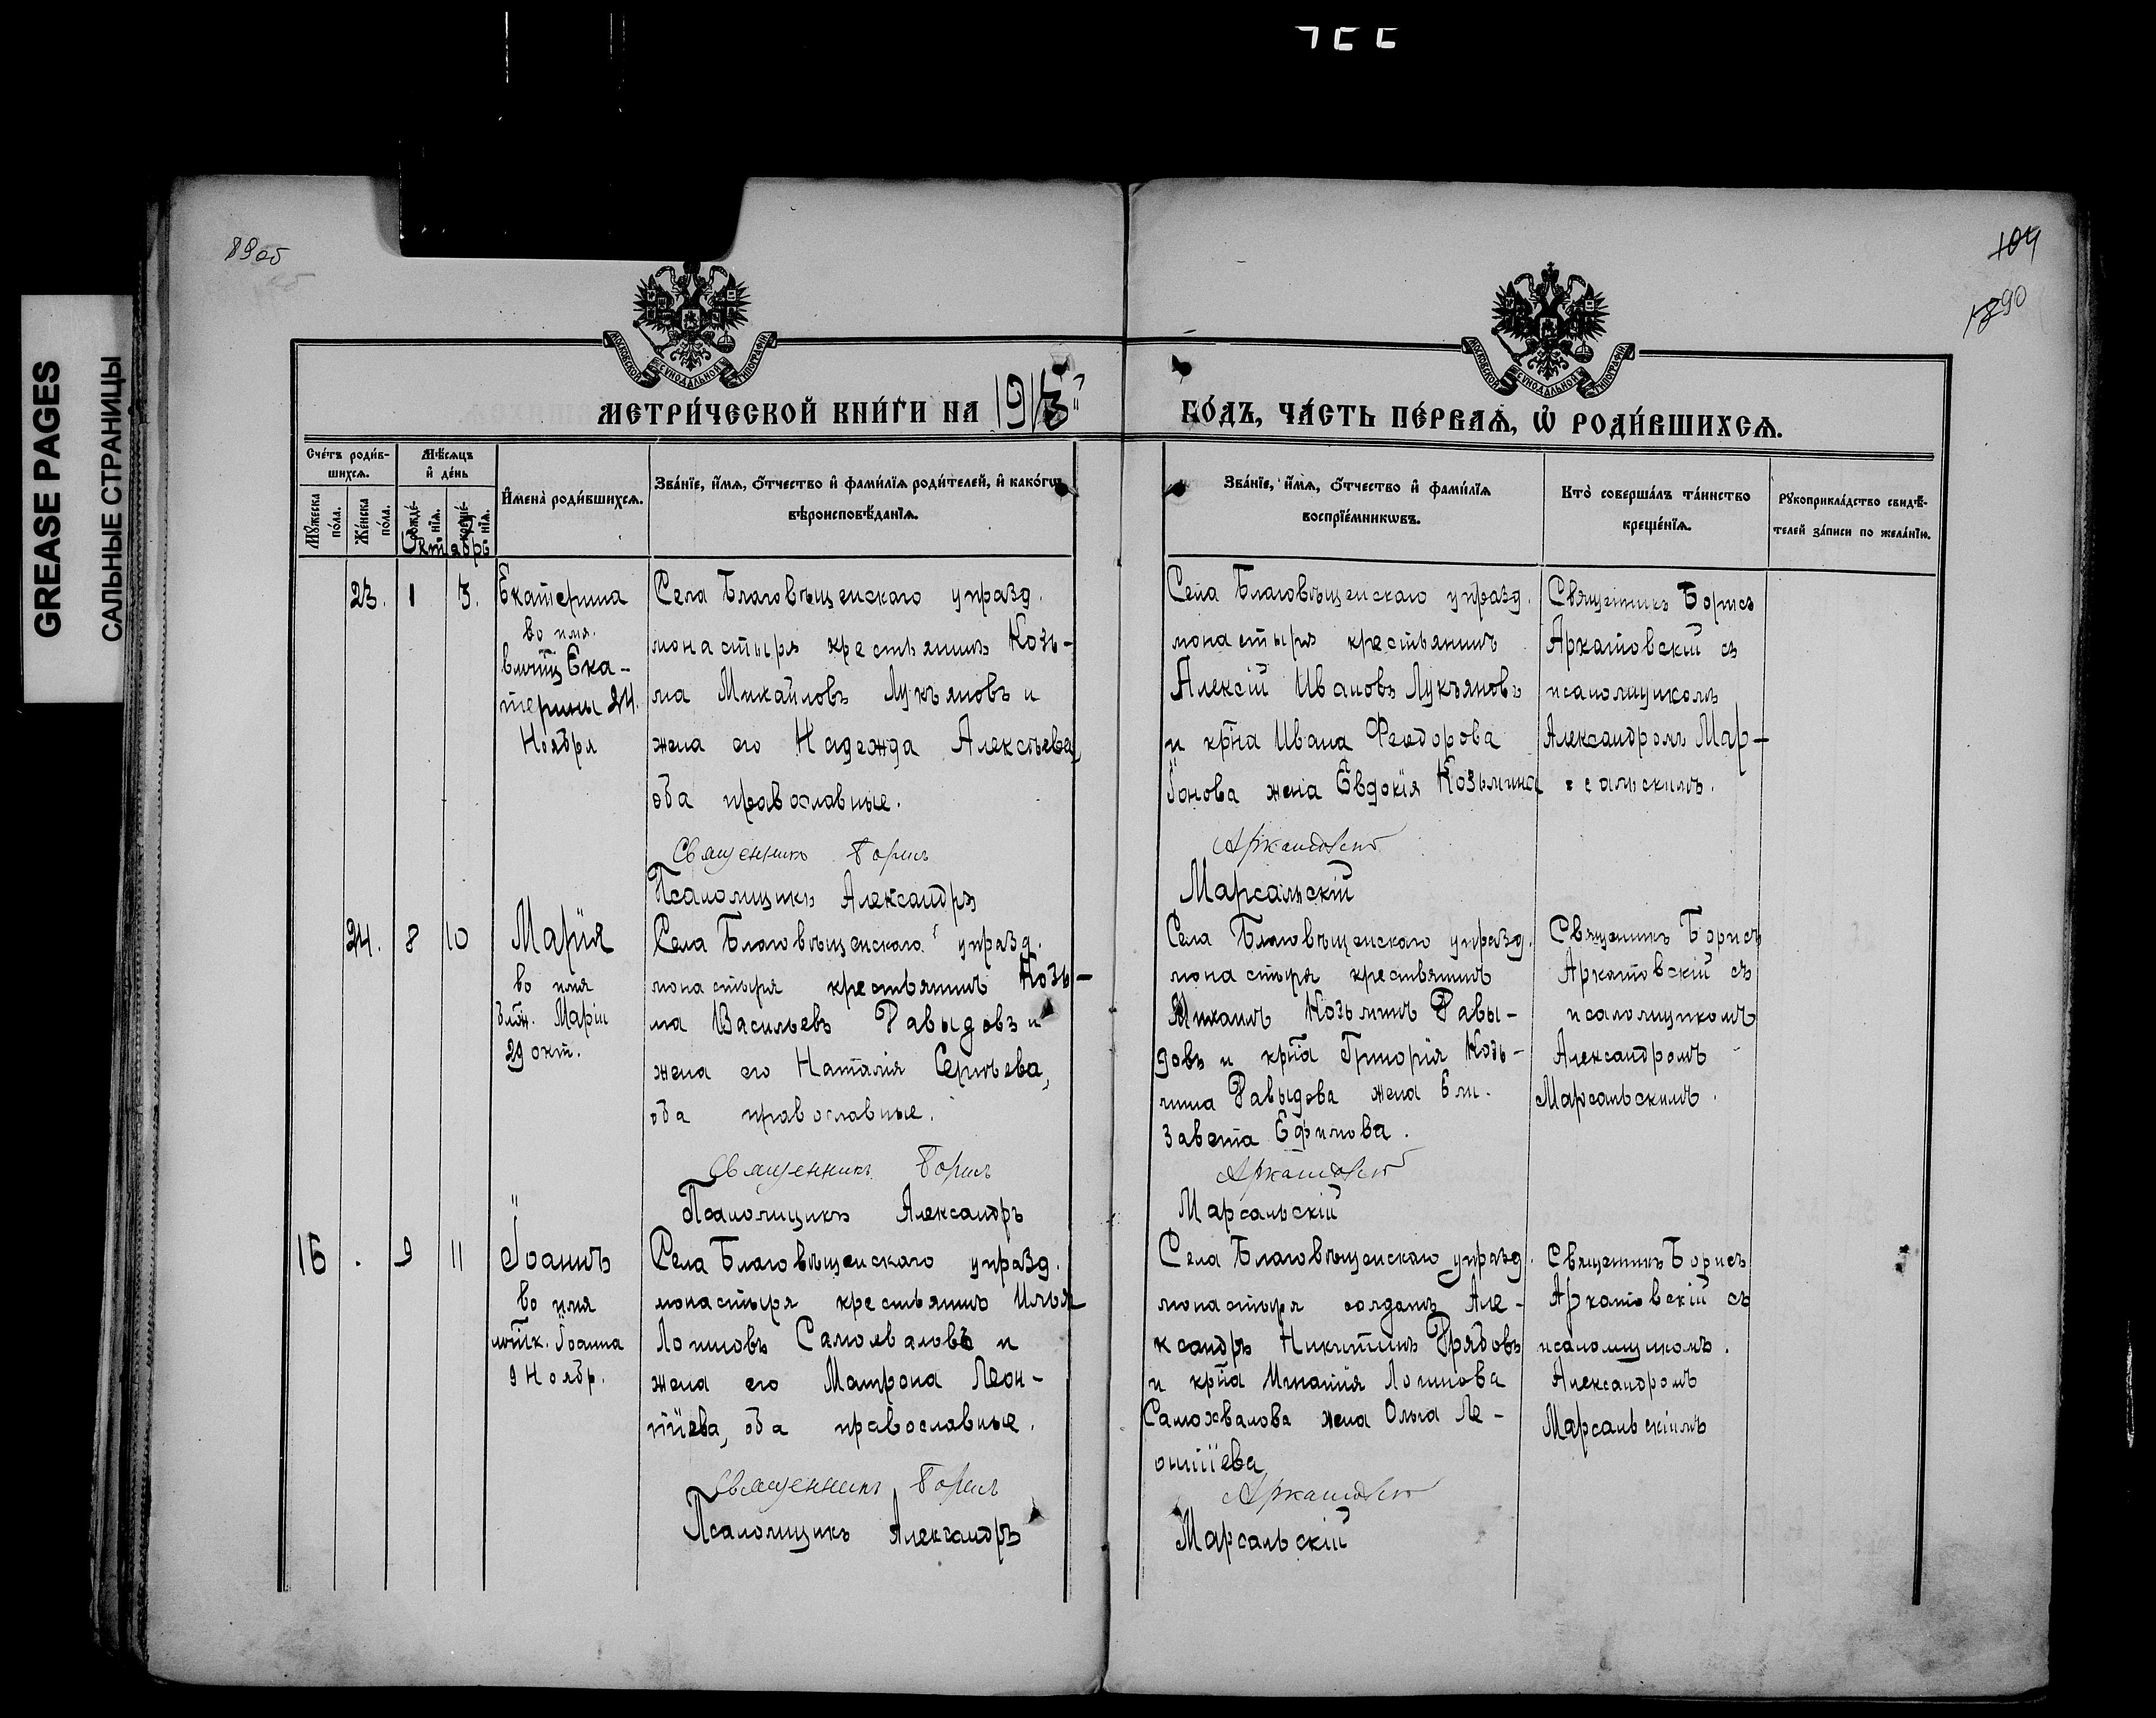 GREASE PAGES
САЛЬНЫЕ СТРАНИЦЫ
89 об
104
90
МОСКОВСКОЙ СѴНОДАЛЬНОЙ ТИПОГРАФІИ
МОСКОВСКОЙ СѴНОДАЛЬНОЙ ТИПОГРАФІИ
МЕТРИ́ЧЕСКОЙ КНИ́ГИ НА 1913
ГО́ДЪ, ЧА́СТЬ ПЕ́РВАѦ, Ѡ҆ РОДИ́ВШИХСѦ.
Сче́тъ роди́в-
шихсѧ.
Мѣ́сѧцъ
и҆ де́нь
Мꙋ́жеска
по́ла.
Же́нска
по́ла.
рожде́-
нїѧ.
креще́-
нїѧ.
И҆мена̀ роди́вшихсѧ.
Зва́нїе, и҆́мѧ, ѻ҆́тчество и҆ фами́лїѧ роди́телей, и҆ како́гѡ
вѣроисповѣ́данїѧ.
Зва́нїе, и҆́мѧ, ѻ҆́тчество и҆ фами́лїѧ
воспрїе́мникѡвъ.
Кто̀ соверша́лъ та́инство
креще́нїѧ.
Рꙋкоприкла́дство свидѣ́-
телей за́писи по жела́нїю.
Октябрь
23. 1 3.
Екатерина
во имя
влмчц Ека-
терины 24.
Ноября
Села Благовѣщенскаго упразд.
монастыря крестьянинъ Козь-
ма Михайловъ Лукъяновъ и
жена его Надежда Алексѣева,
оба православные.
Священникъ Борисъ
Псаломщикъ Александръ
Села Благовѣщенскаго упразд.
монастыря крестьянинъ
Алексій Ивановъ Лукъяновъ
и крѣна Ивана Феодорова
жена Евдокія Козьмина
Аркатовскій
Марсальскій
Священникъ Борисъ
Аркатовскій съ
псаломщикомъ
Александромъ Мар-
сальскимъ.
24. 8 10
Марія
во имя
Маріи
29 окт.
Села Благовѣщенскаго упразд.
монастыря крестьянинъ Козь-
ма Васильевъ Давыдовъ и
жена его Наталія Сергѣева,
оба православные.
Священникъ Борисъ
Псаломщикъ Александръ
Села Благовѣщенскаго упразд.
монастыря крестьянинъ
Михаилъ Козьминъ Давы-
довъ и крѣна Григорія Козь-
мина Давыдова жена Ели-
завета Ефимова.
Аркатовскій
Марсальскій
Священникъ Борисъ
Аркатовскій съ
псаломщикомъ
Александромъ
Марсальскимъ.
16 . 9 11
Іоаннъ
во имя
Іоанна
9 Ноябр.
Села Благовѣщенскаго упразд.
монастыря крестьянинъ Илья
Логиновъ Самохваловъ и
жена его Матрона Леон-
тіева, оба православные.
Священникъ Борисъ
Псаломщикъ Александръ
Села Благовѣщенскаго упразд.
монастыря солдатъ Але-
ксандръ Никитинъ
и крѣна Игнатія Логинова
Самохвалова жена Ольга Ле-
онтіева
Аркатовскій
Марсальскій
Священникъ Борисъ
Аркатовскій съ
псаломщикомъ.
Александромъ
Марсальскіимъ